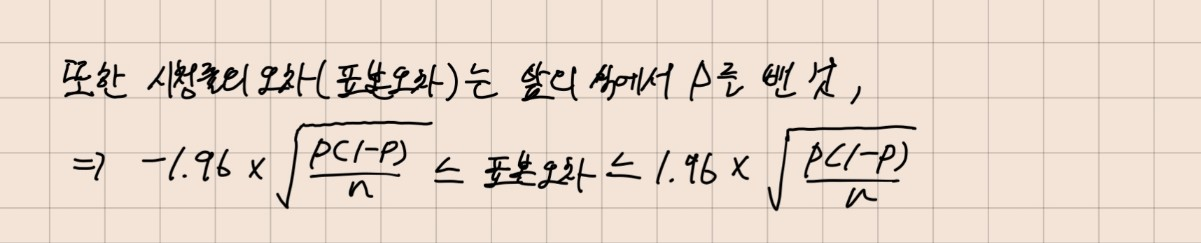 또한 시청률의 오차(표본오차)는 앞의 식에서 p를 뺀 것,
⇒ -1.96 × √(p(1-p)/n) ≤ 표본오차 ≤ 1.96 × √(p(1-p)/n)